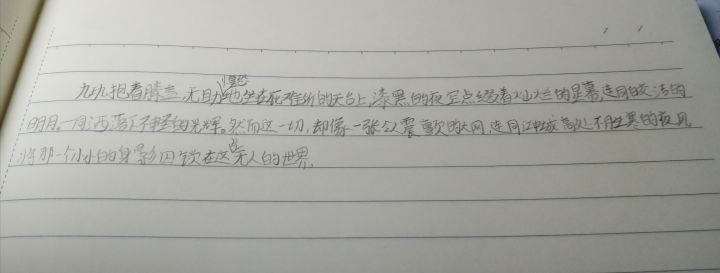 九九抱着膝盖,无助地坐在花堆纷的天台上,漆黑的夜空点缀着灿烂的星幕,连同皎洁的
明月。一同洒落下神圣的光辉。然而这一切,却像一张令人震的大网,连同江城高处不胜寒的夜风
将那一个小小的身影囚锁在这无人的世界.